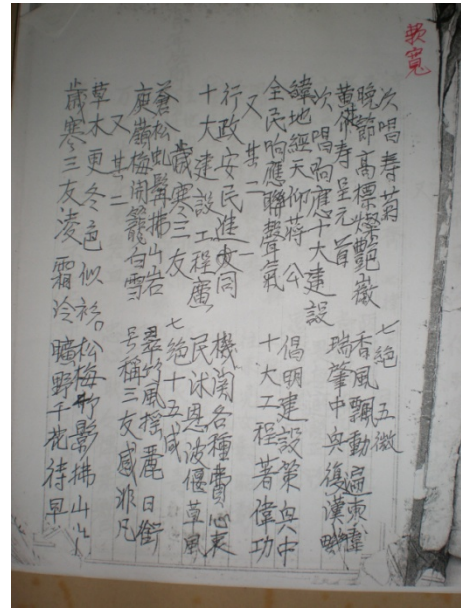 賴寬
次唱寿菊 七絶 五微
晚節高標燦艷薇 香風飄動遍東幃
黄 寿呈元首 瑞肇中兴復漢畿
次唱响應十大建設
緯地經天仰蒋公 倡明建設策兴中
全民响應聯聲氣 十大工程著偉功
又 其二
行政安民進大同 機関各種費心衷
十大建設工程廣 民沐恩波偃草風
歲寒三友 七絶十五咸
蒼松虬髯拂山岩 翠竹風摇麗日銜
庾嶺梅開籠白雪 号稱三友感非凡
又 其二
草木更冬色似 松梅竹影拂山
歲寒三友凌霜冷 曠野千花待